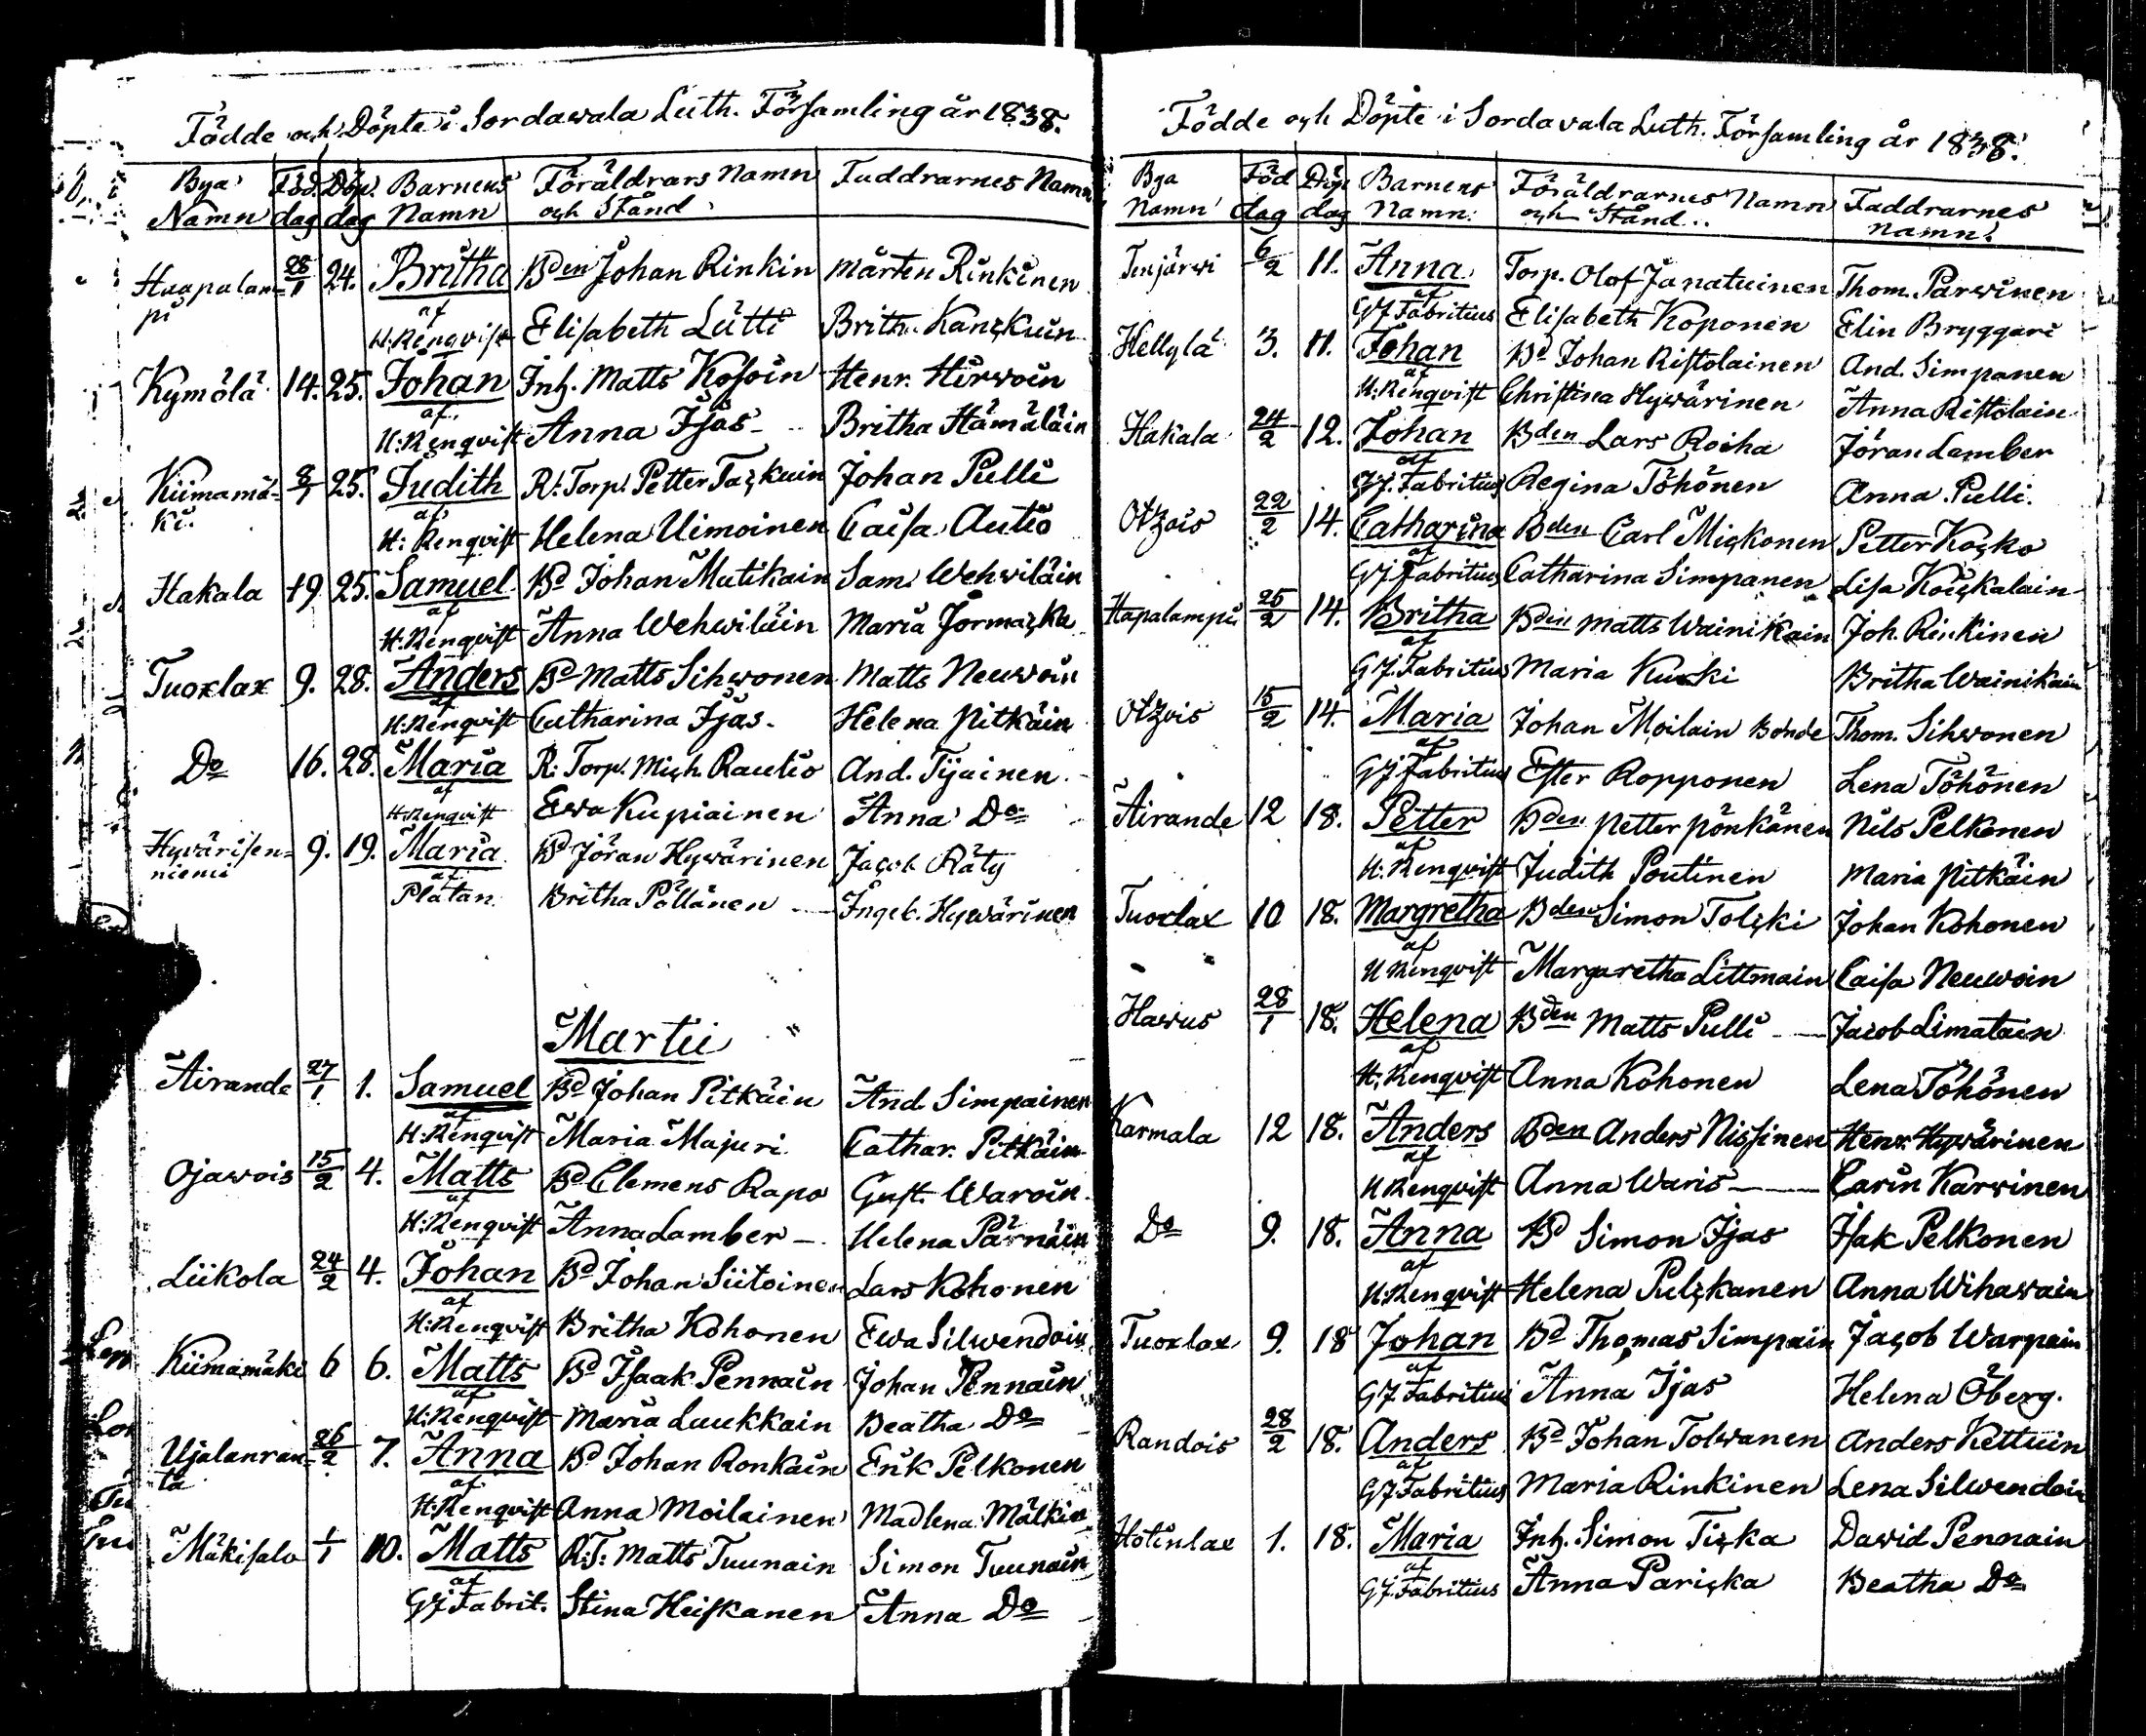 Födde och Döpte i Sordawala Luth. Församling år 1838.
Bya Namn Föd. dag Döp. dag Barnens Namn Föräldrars Namn och Stånd Faddrarnes Namn
Haapalam= 28/1 24. Britha Bden Johan Rinkin Mårten Rinkinen
pi af H. Renqvist Elisabeth Lütti Britha Kanskuin
Kymölä 14. 25. Johan Inh. Matts Kosoin Henr. Hirwoin
af H: Renqvist Anna Ijäs Britha Hämäläin
Kiimamä= 8/1 25. Judith R: Torp. Petter Taskuin Johan Pulli
ki. af H: Renqvist Helena Uimoinen Caisa Autio
Hakala 19. 25. Samuel Bd Johan Matikain Sam. Wehwiläin
af H. Renqvist Anna Wehwiläin Maria Jormaska
Tuoxlax 9. 28. Anders Bd Matts Sihwonen Matts Neuwoin
af H: Renqvist Catharina Ijäs. Helena Pitkäin
Do 16. 28. Maria R: Torp. Mich Rautio And. Tijainen
af H. Renqvist Ewa Kupiainen Anna Do
Hyvärisen= 9. 19. Maria Bd Jöran Hywärinen Jacob Räty
niemi af Platan Britha Pöllänen Ingeb. Hywärinen
Martii
Airande 27/1 1. Samuel Bd Johan Pitkäin And. Simpainen
af H: Renqvist Maria Majuri Cathar. Pitkäin
Ojawois 15/2 4. Matts Bd Clemens Rapo Gust. Waroin
af H: Renqvist Anna Lamber Helena Pärnäin
Liikola 24/2 4. Johan Bd Johan Siitoinen Lars Kohonen
af H: Renqvist Britha Kohonen Ewa Silwendoin
Kiimamäki 6 6. Matts Bd Isaak Pennain Johan Pennain
af H: Renqvist Maria Luukkain Beatha Do
Ujalanran= 26/2 7. Anna Bd Johan Ronkain Erik Pelkonen
ta af H: Renqvist Anna Moilainen Madlena Mälkin
Mäkisalo 1/1 10. Matts R: T: Matts Tuunain Simon Tuunain
af GJ Fabrit. Stina Heiskanen Anna Do
Födde och Döpte i Sordavala Luth. Församling år 1838.
Bya Namn Föd dag Döp dag Barnens Namn. Föräldrarnes Namn och Stånd. Faddrarnes Namn.
Tenjärwi 6/2 11. Anna Torp. Olof Janatuinen Thom. Parwinen
af GJ Fabritius Elisabeth Koponen Elin Bryggari
Hellylä 3. 11. Johan Bd Johan Ristolainen And. Simpanen
af H. Renqvist Christina Hywärinen Anna Ristolain
Hakala 24/2 12. Johan Bden Lars Roiha Jöran Lamber
af GJ. Fabritius Regina Töhönen Anna Pulli.
Otzois 22/2 14. Catharina Bden Carl Miskonen Petter Kosko
af GJ Fabritius Catharina Simpanen Lisa Koiskalain
Hapalampi 25/2 14. Britha Bden Matts Wainikain Joh. Rinkinen
af GJ. Fabritius Maria Kurki Britha Wainikain
Otzois 15/2 14. Maria Johan Moilain Bonde Thom. Sihwonen
af GJ Fabritius Ester Ropponen Lena Töhönen
Airande 12 18. Petter Bden Petter Pönkänen Nils Pelkonen
af H. Renqvist Judith Poutinen Maria Pitkäin
Tuoxlax 10 18. Margretha Bden Simon Tolski Johan Kohonen
af H Renqvist Margaretha Littmain Caisa Neuwoin
Hawus 28/1 18. Helena Bden Matts Pulli Jacob Limatain
af H. Renqvist Anna Kohonen Lena Töhönen
Karmala 12 18. Anders Bden Anders Nissinen Henr. Hywärinen
af H Renqvist Anna Waris Carin Karvinen
Do 9. 18. Anna Bd Simon Ijas Isak Pelkonen
af H: Renqvist Helena Pulskanen Anna Wihawain
Tuoxlax 9. 18 Johan Bd Thomas Simpain Jacob Warpain
af GJ Fabritius Anna Ijas Helena Öberg.
Randois 28/2 18. Anders Bd Johan Tolwanen Anders Kettuin
af GJ Fabritius Maria Rinkinen Lena Silwendoin
Hotinlax 1. 18. Maria Inh. Simon Tiska David Pennain
af GJ. Fabritius Anna Pariska Beatha Do